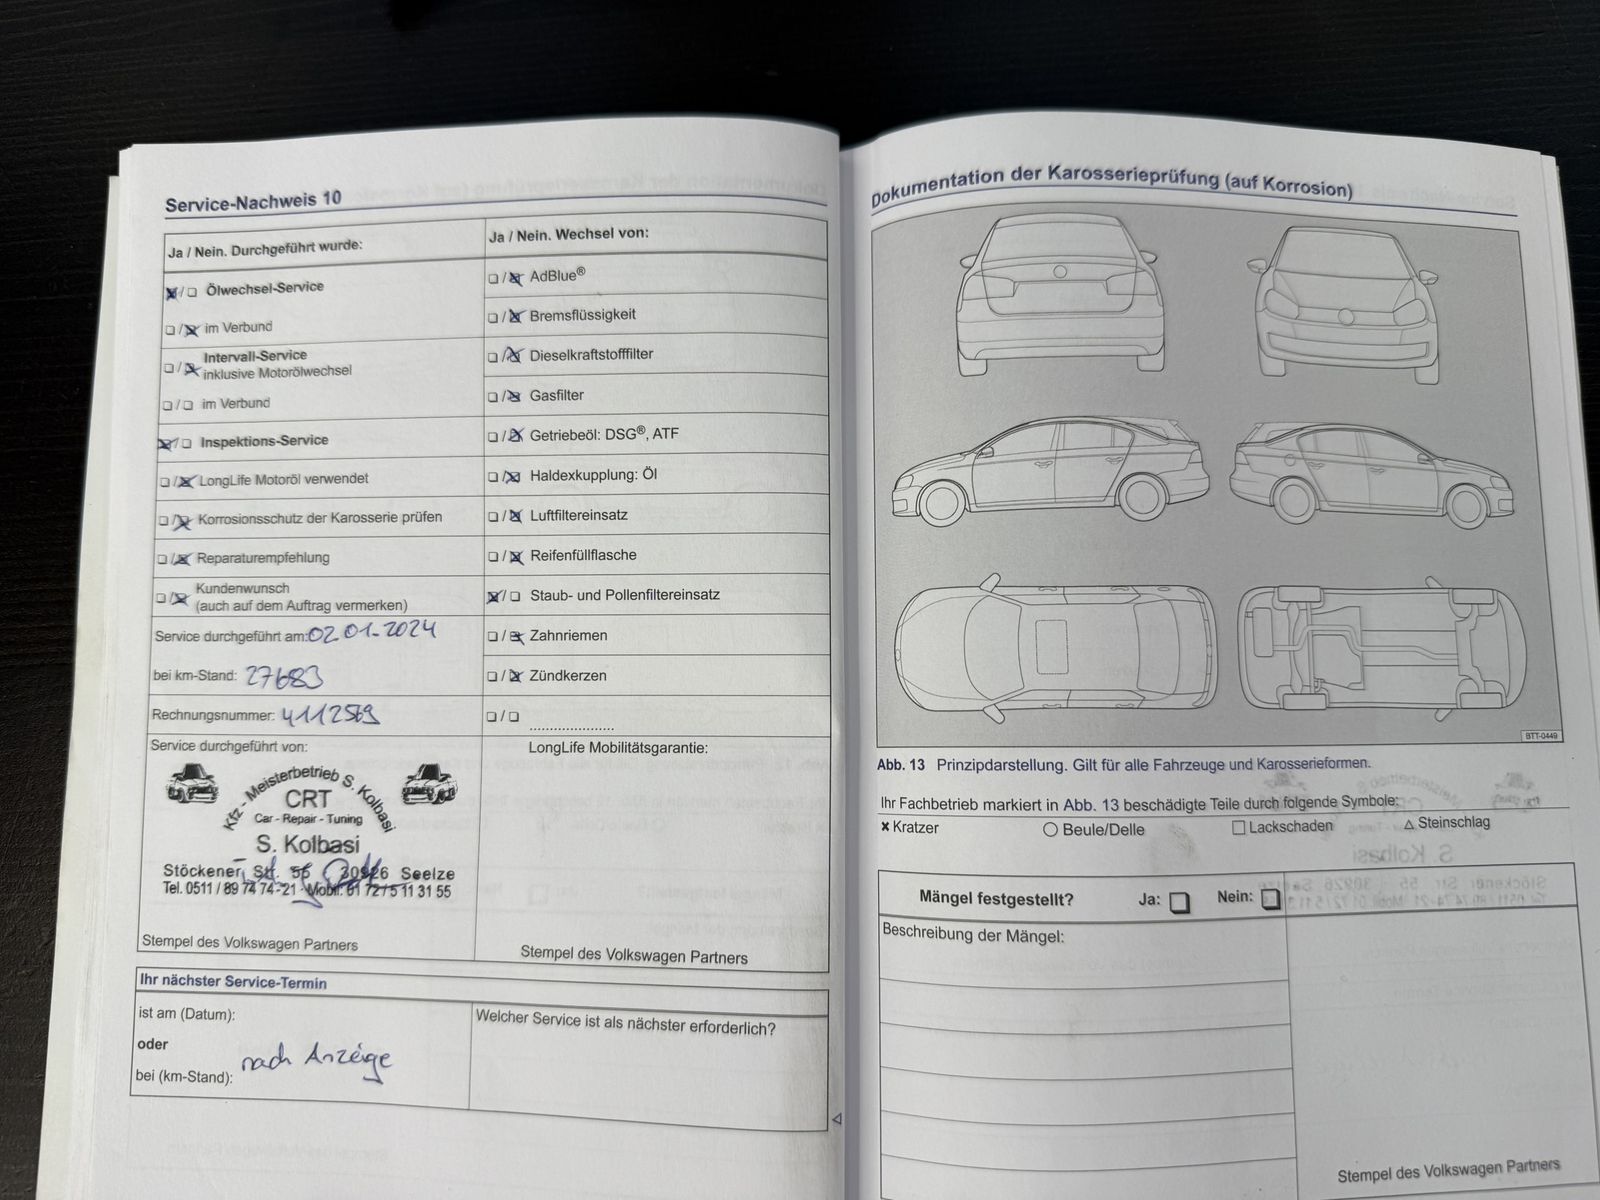 Service-Nachweis 10
Ja / Nein. Durchgeführt wurde:
☒/☐ Ölwechsel-Service
☐/☒ im Verbund
☐/☒ Intervall-Service
inklusive Motorölwechsel
☐/☐ im Verbund
☒/☐ Inspektions-Service
☐/☒ LongLife Motoröl verwendet
☐/☒ Korrosionsschutz der Karosserie prüfen
☐/☒ Reparaturempfehlung
☐/☒ Kundenwunsch
(auch auf dem Auftrag vermerken)
Service durchgeführt am: 02.01.2024
bei km-Stand: 27683
Rechnungsnummer: 4112569
Service durchgeführt von:
Kfz - Meisterbetrieb S. Kolbasi
CRT
Car - Repair - Tuning
S. Kolbasi
Stöckener Str. 55 30926 Seelze
Tel. 0511 / 89 74 74 - 21 · Mobil: 01 72 / 5 11 31 55
Stempel des Volkswagen Partners
Ja / Nein. Wechsel von:
☐/☒ AdBlue®
☐/☒ Bremsflüssigkeit
☐/☒ Dieselkraftstofffilter
☐/☒ Gasfilter
☐/☒ Getriebeöl: DSG®, ATF
☐/☒ Haldexkupplung: Öl
☐/☒ Luftfiltereinsatz
☐/☒ Reifenfüllflasche
☒/☐ Staub- und Pollenfiltereinsatz
☐/☒ Zahnriemen
☐/☒ Zündkerzen
☐/☐ ....................
LongLife Mobilitätsgarantie:
Stempel des Volkswagen Partners
Ihr nächster Service-Termin
ist am (Datum):
oder
nach Anzeige
bei (km-Stand):
Welcher Service ist als nächster erforderlich?
Dokumentation der Karosserieprüfung (auf Korrosion)
BTT-0449
Abb. 13 Prinzipdarstellung. Gilt für alle Fahrzeuge und Karosserieformen.
Ihr Fachbetrieb markiert in Abb. 13 beschädigte Teile durch folgende Symbole:
✖ Kratzer ○ Beule/Delle □ Lackschaden △ Steinschlag
Mängel festgestellt? Ja: ☐ Nein: ☐
Beschreibung der Mängel:
Stempel des Volkswagen Partners